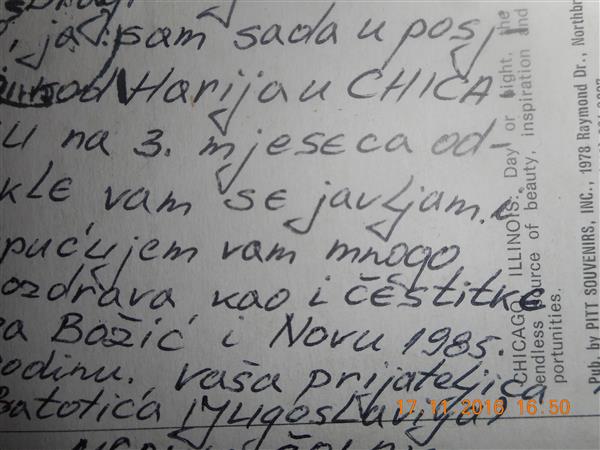 ja sam sada u posj
kod Harija u CHICA
u na 3. mjeseca od-
kle vam se javljam. i
pućujem vam mnogo
ozdrava kao i čestitke
za Božić i Novu 1985.
godinu. vaša prijateljica
Batotića (Jugoslavija)
CHICAGO, ILLINOIS. Day or night, the
endless source of beauty, inspiration and
portunities.
Pub. by PITT SOUVENIRS, INC., 1978 Raymond Dr., Northbr
17.11.2016 16:50